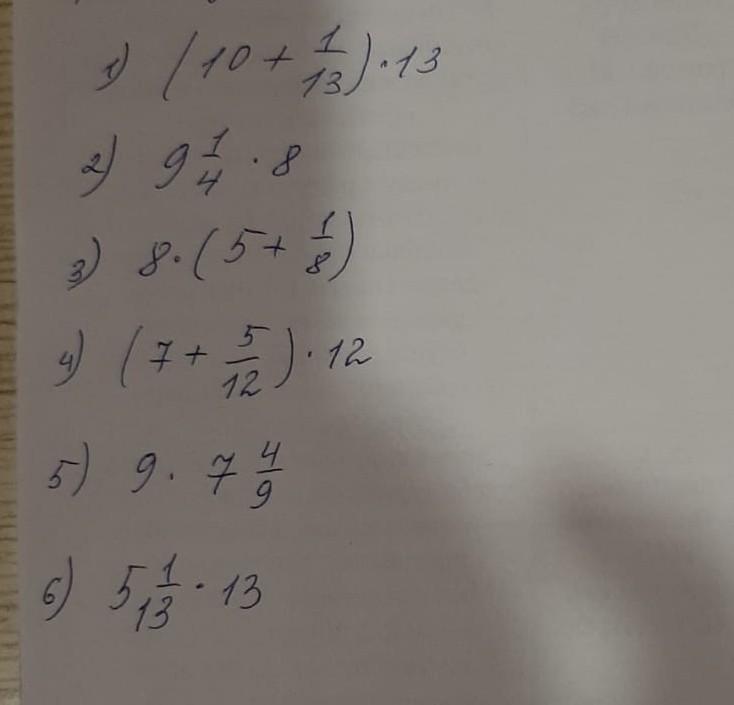 1) (10 + 1/13) · 13
2) 9 1/4 · 8
3) 8 · (5 + 1/8)
4) (7 + 5/12) · 12
5) 9 · 7 4/9
6) 5 1/13 · 13